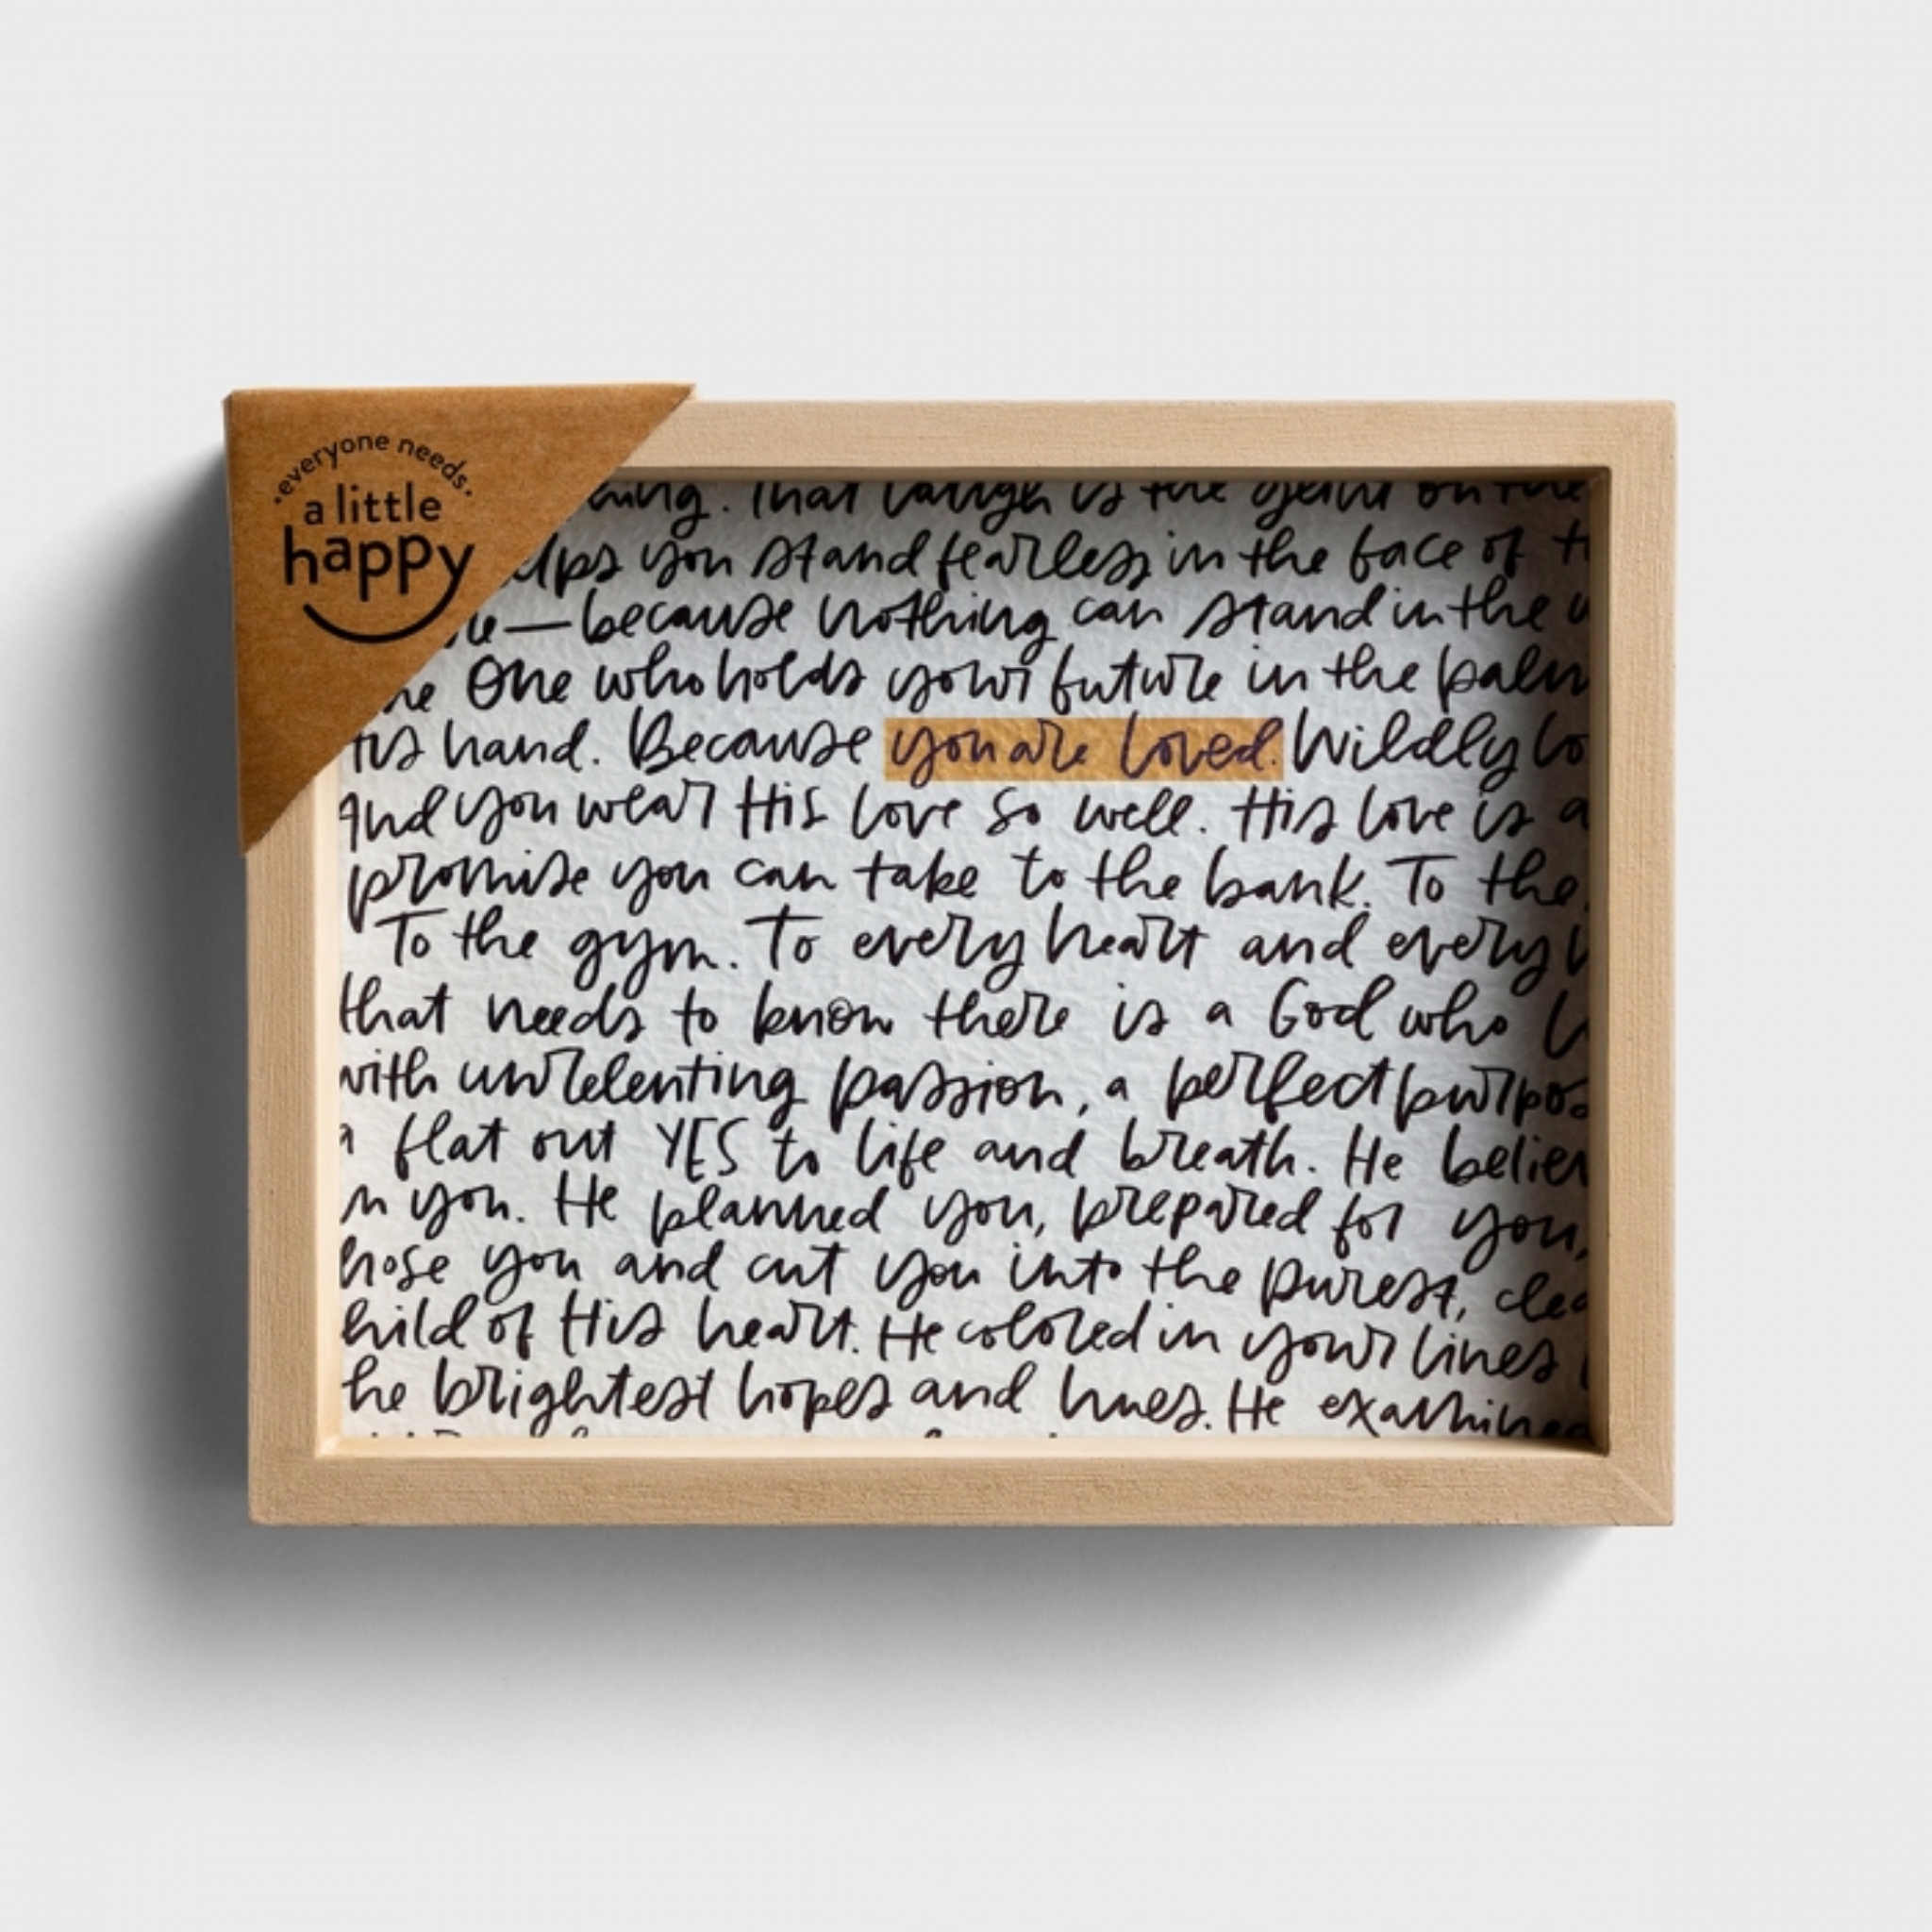 everyone needs
a little
happy
. That laugh is the
you stand fearless in the face of
—because nothing can stand in the
One who holds your future in the palm
His hand. Because you are loved. Wildly
And you wear His love so well. His love is a
promise you can take to the bank. To the
To the gym. To every heart and every
that needs to know there is a God who
with unrelenting passion, a perfect purpos
a flat out YES to life and breath. He believ
in you. He planned you, prepared for you,
hose you and cut you into the purest, clea
hild of His heart. He colored in your lines
he brightest hopes and hues. He examine